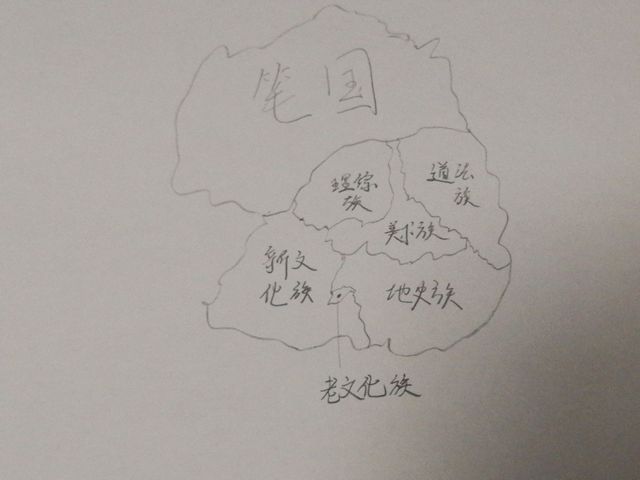 笔国
理综
族
道法
族
美术族
新文
化族
地史族
老文化族